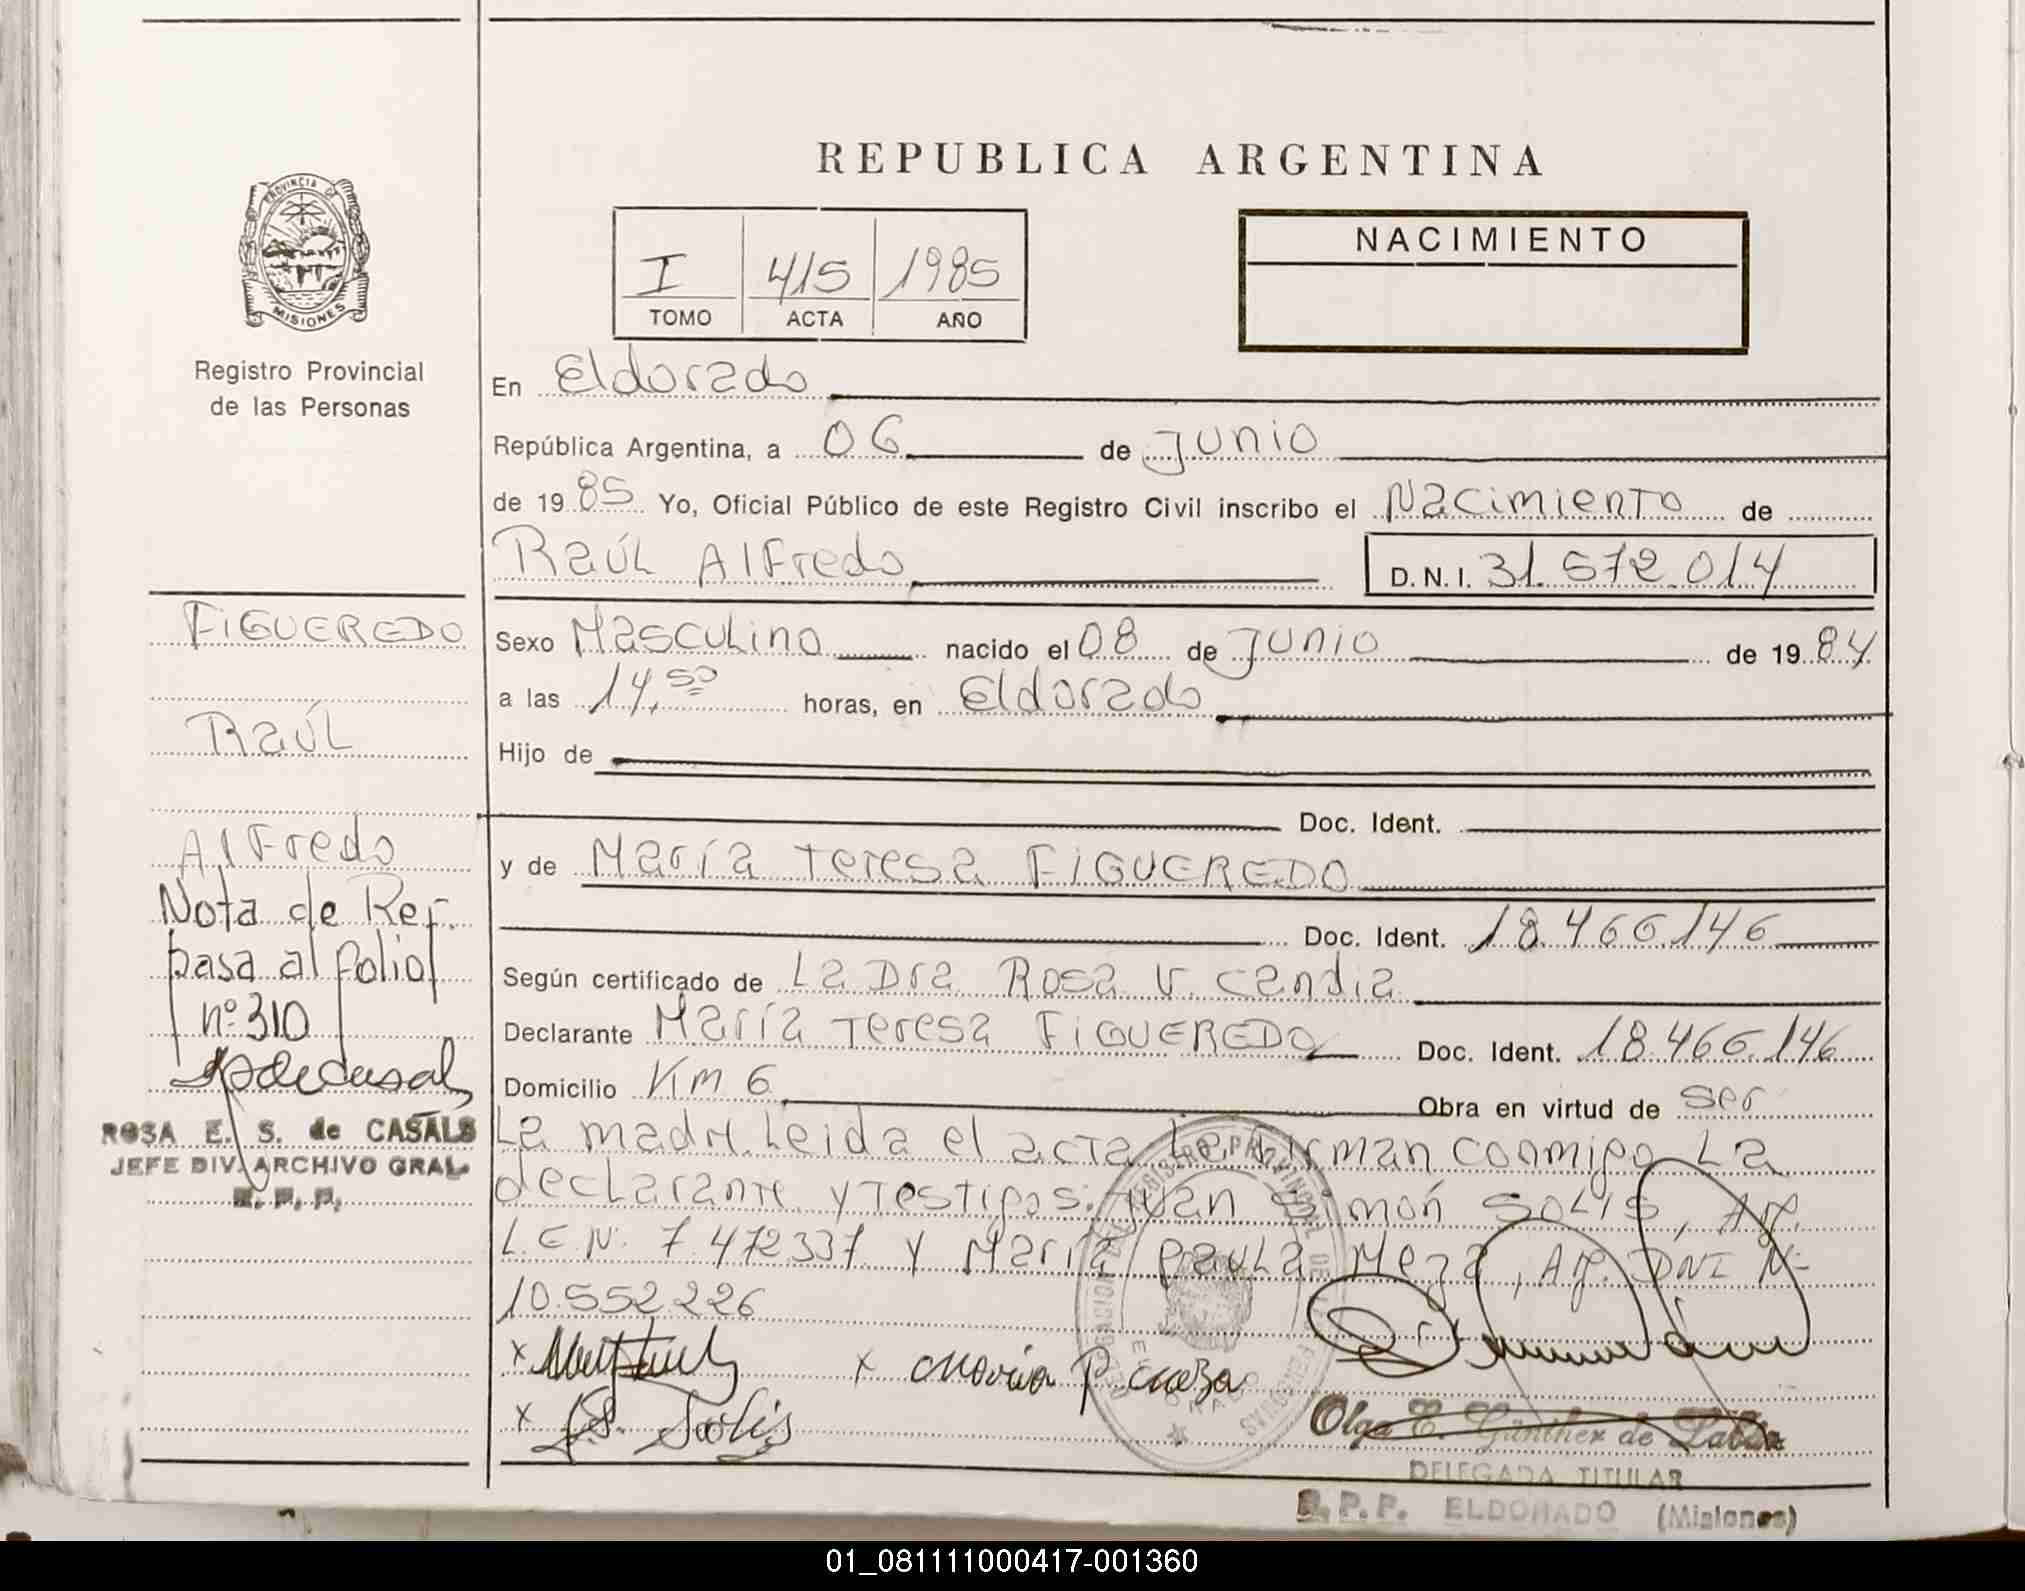 REPUBLICA ARGENTINA
PROVINCIA DE
MISIONES
Registro Provincial
de las Personas
I 415 1985
TOMO ACTA AÑO
NACIMIENTO
En Eldorado
República Argentina, a 06 de Junio
de 1985 Yo, Oficial Público de este Registro Civil inscribo el Nacimiento de
Raúl Alfredo D.N.I. 31.572.014
FIGUEREDO
Raúl
Alfredo
Nota de Ref.
pasa al folio
nº 310
ROSA E. S. de CASALS
JEFE DIV. ARCHIVO GRAL.
R. P. P.
Sexo Masculino nacido el 08 de Junio de 1984
a las 14,50 horas, en Eldorado
Hijo de
Doc. Ident.
y de María Teresa FIGUEREDO
Doc. Ident. 18.466.146
Según certificado de La Dra Rosa V. Candia
Declarante María Teresa FIGUEREDO Doc. Ident. 18.466.146
Domicilio Km 6 Obra en virtud de ser
La madre. Leida el acta La firman conmigo La
declarante y testigos: Juan Simón SOLIS, Arg.
L.E.Nº 7.472337 y María Paula Meza, Arg. DNI Nº
10.552.226
x x Maria P. Meza
x S. Solis
Olga E. Günther de
DELEGADA TITULAR
R. P. P. ELDORADO (Misiones)
01_081111000417-001360